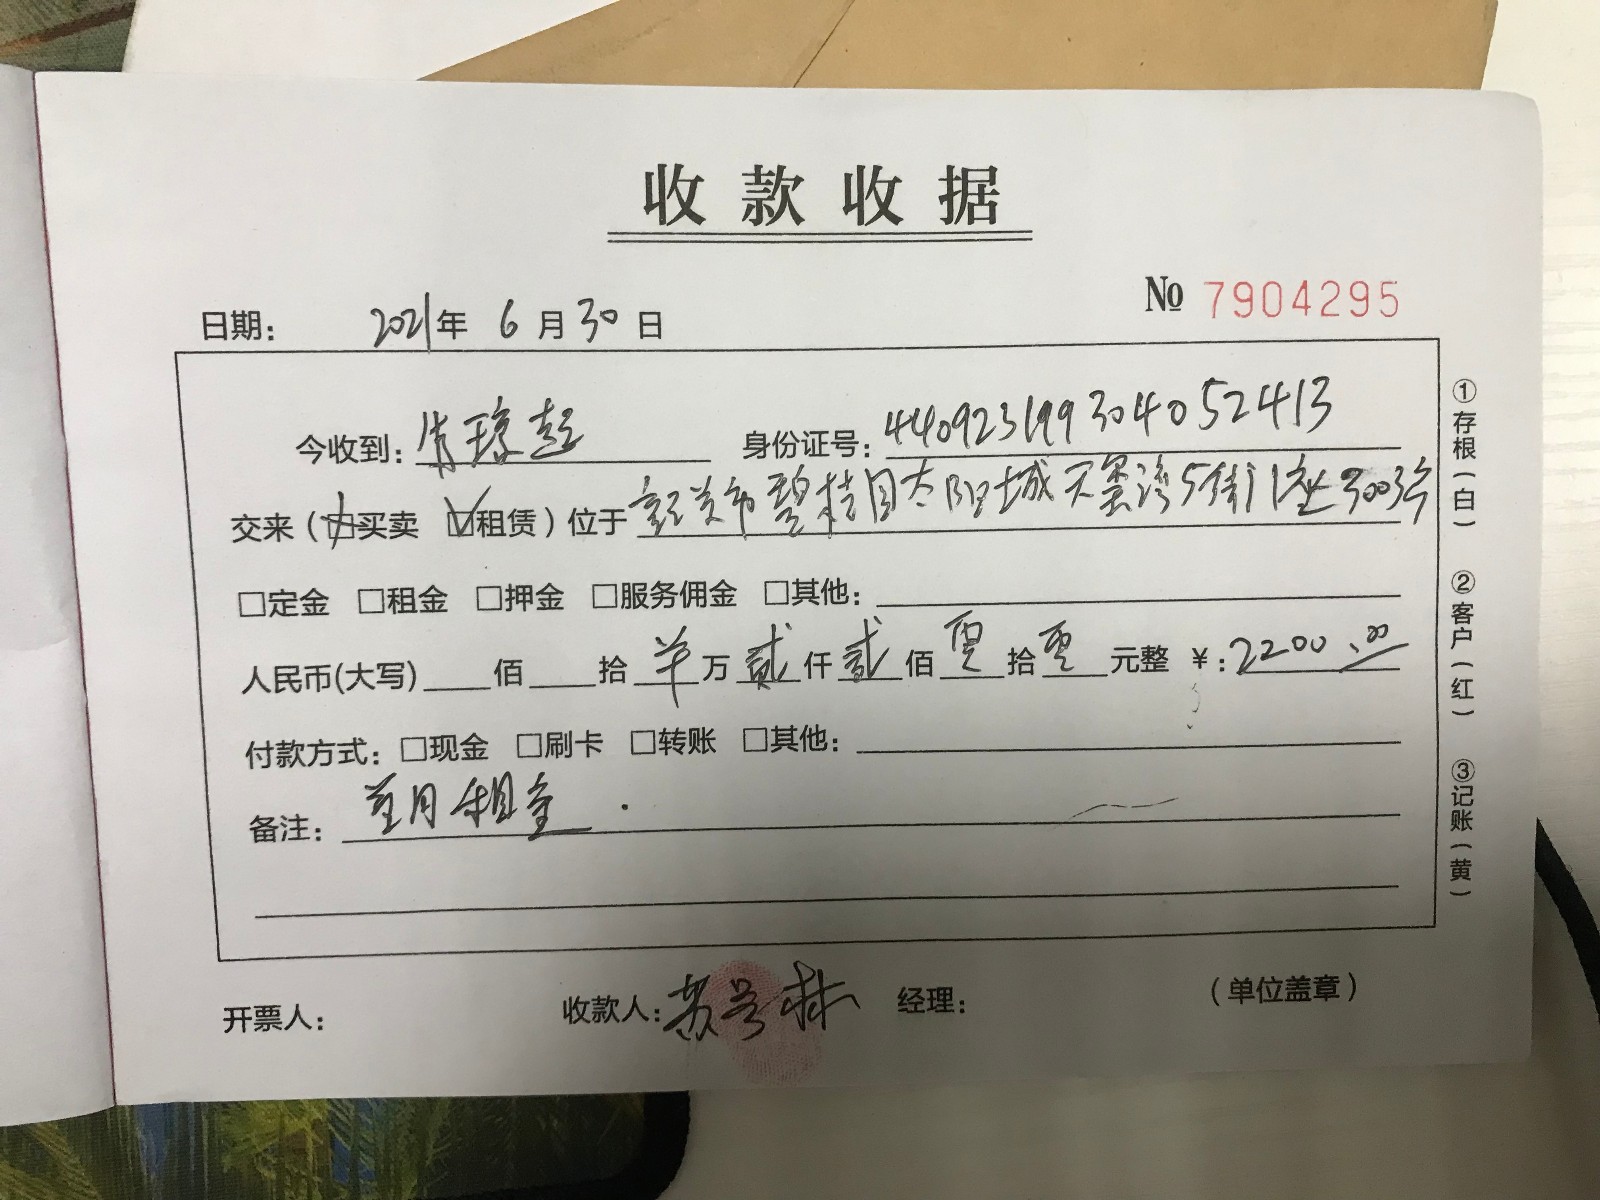 收款收据
№ 7904295
日期： 2021年 6月30日
今收到：肖琼 身份证号：440923199304052413
交来（□买卖 ☑租赁）位于 碧桂园太阳城天墨湾5街1座3003
□定金 □租金 □押金 □服务佣金 □其他：
人民币(大写) 佰 拾 万 贰仟 贰佰 零拾 零元整 ¥：2200.00
付款方式：□现金 □刷卡 □转账 □其他：
备注： 首月租金.
开票人： 收款人：苏 林 经理： （单位盖章）
①存根（白）
②客户（红）
③记账（黄）